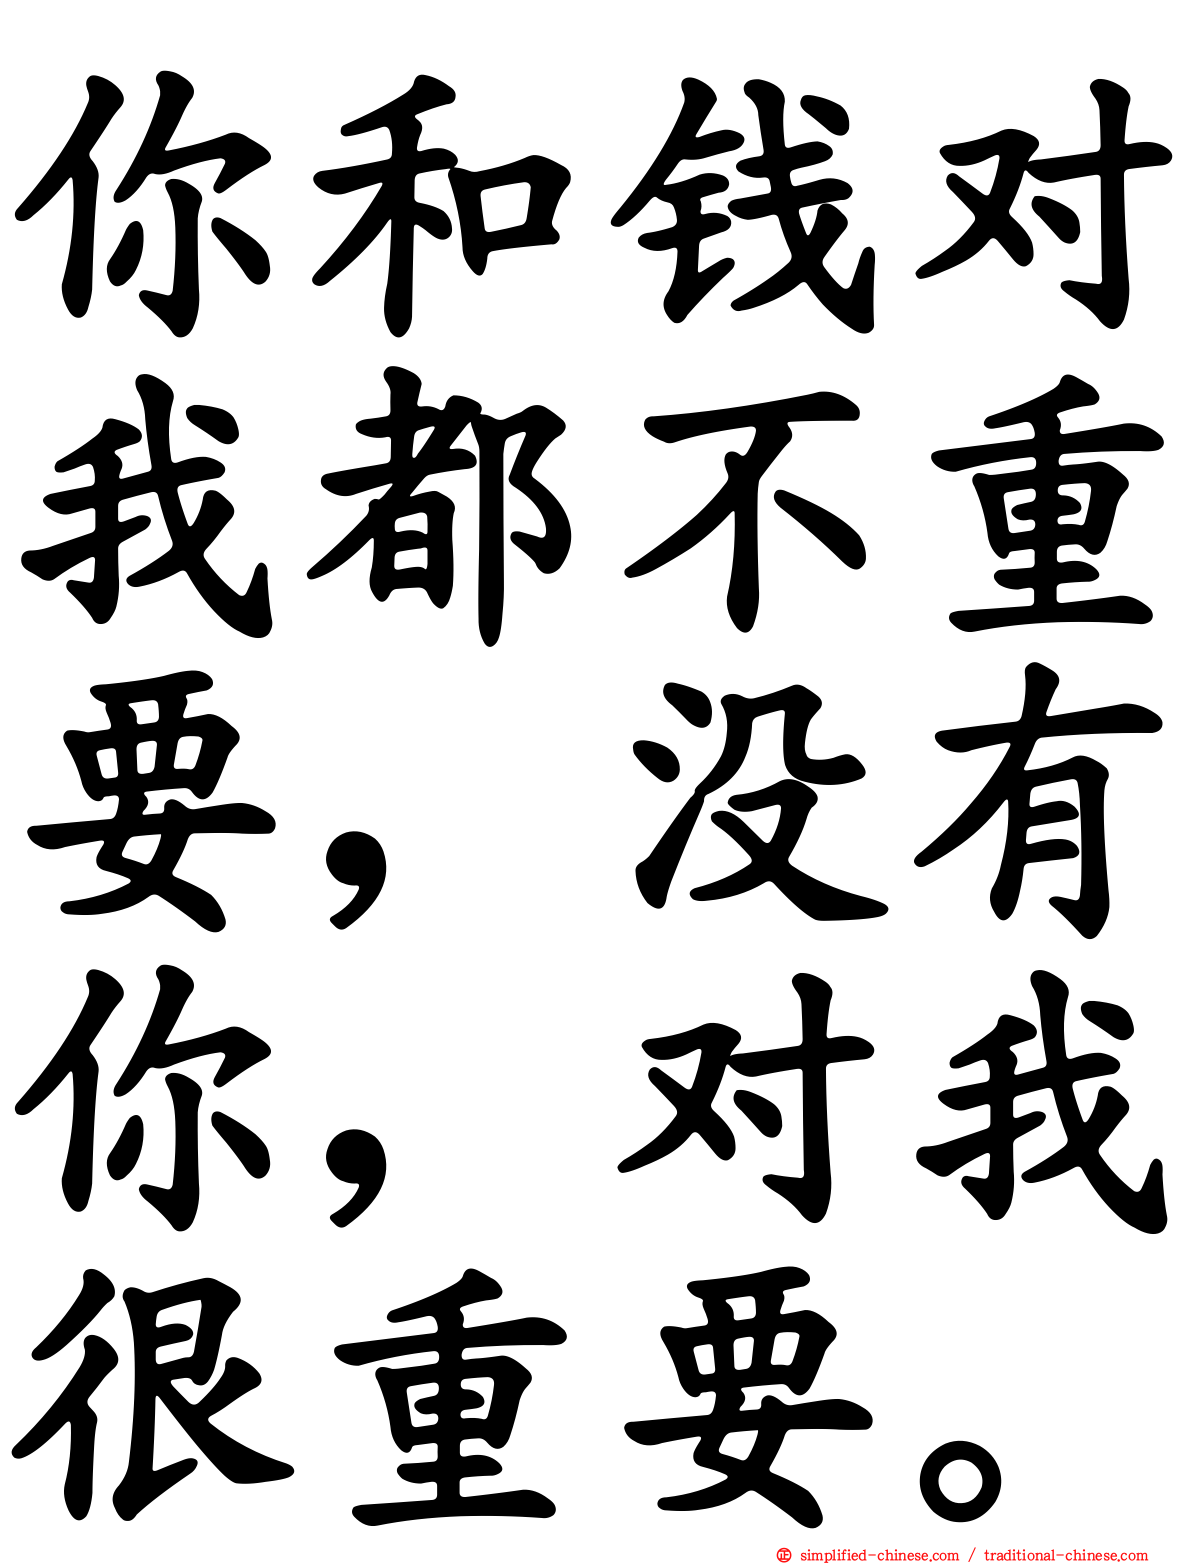 你和钱对
我都不重
要，没有
你，对我
很重要。
㊣ simplified-chinese.com / traditional-chinese.com